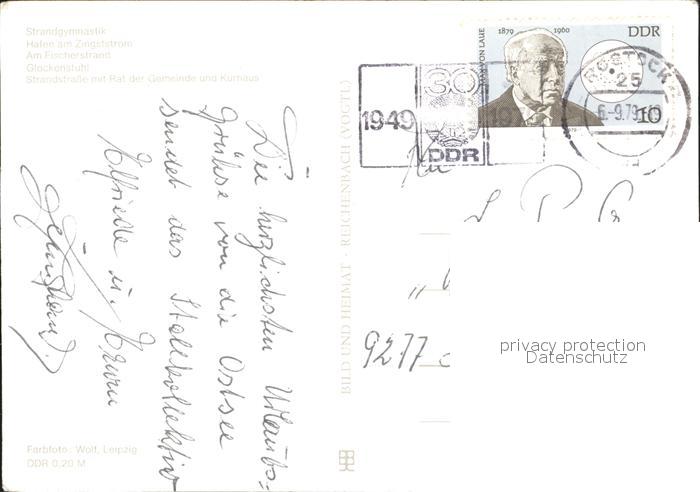 Strandgymnastik
Hafen am Zingststrom
Am Fischerstrand
Glockenstuhl
Strandstraße mit Rat der Gemeinde und Kurhaus
Die herzlichsten Urlaubs-
grüsse von die Ostsee
sendet das Stallkollektiv
Elfriede u. Erwin
Farbfoto: Wolf, Leipzig
DDR 0,20 M
BILD UND HEIMAT · REICHENBACH (VOGTL)
1879 1960
DDR
MAX VON LAUE
10
1949
30
DDR
ROSTOCK
25
6.-9.79
An
9277
privacy protection
Datenschutz